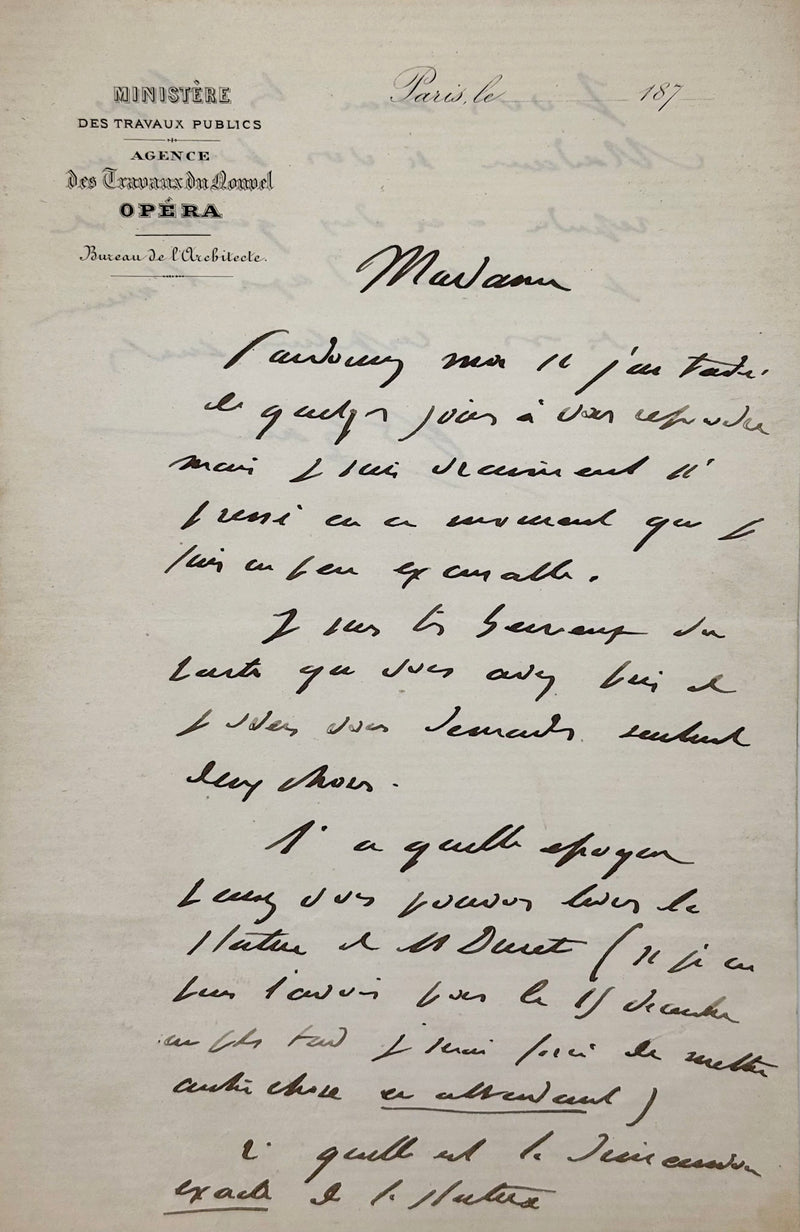 MINISTÈRE
DES TRAVAUX PUBLICS
AGENCE
des Travaux du Nouvel
OPÉRA
Bureau de l'Architecte.
Paris, le 187
Madame
Pardonnez moi si j'ai tardé
de quelques jours à vous répondre
mais je suis vraiment si
pressé en ce moment que je
suis un peu excusable.
Je suis très heureux du
parti que vous avez pris et
je vais vous demander seulement
deux choses.
1° a quelle époque
pensez vous pouvoir livrer la
Statue de M Duret (si je ne
puis l'avoir pour le 15 décembre
au plus tard je serai forcé de mettre
autre chose en attendant)
2° quelle est la dimension
exacte de la Statue